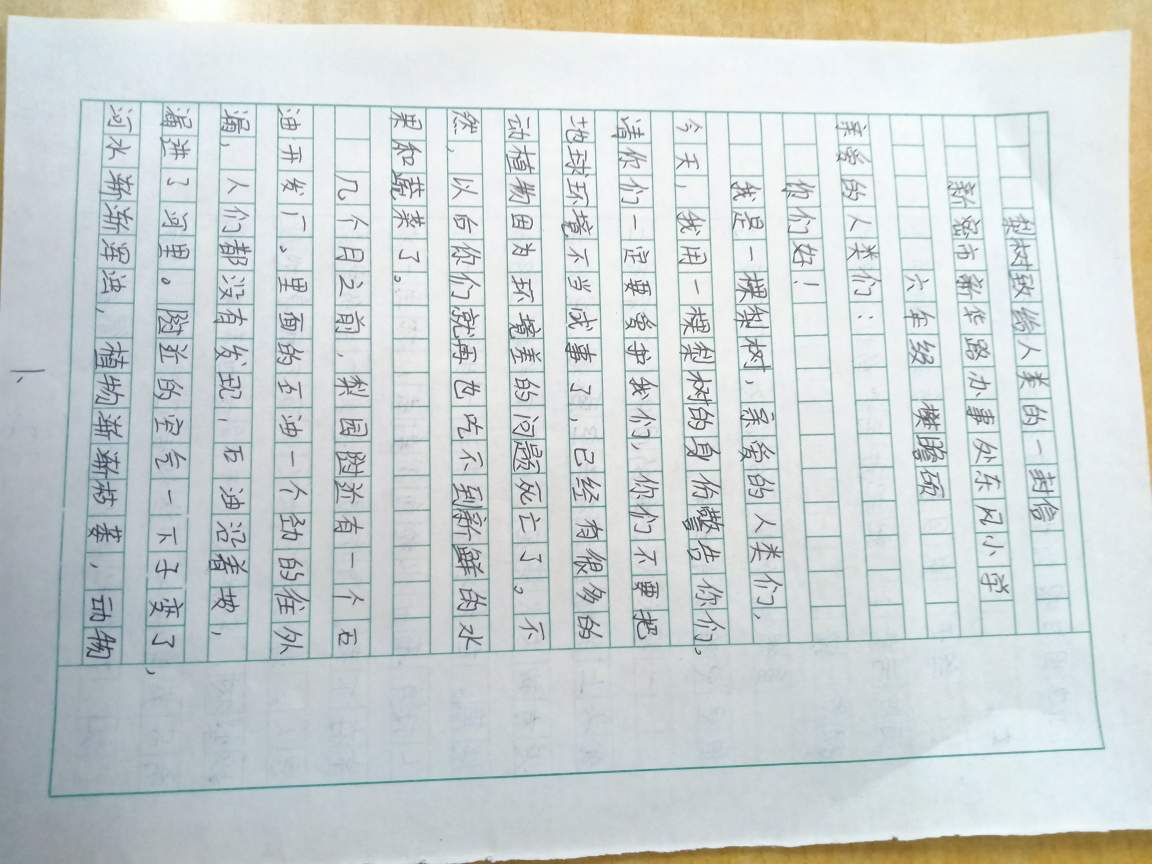 梨树致给人类的一封信
新密市新华路办事处东风小学
六年级 樊瞻硕
亲爱的人类们：
你们好！
我是一棵梨树，亲爱的人类们，
今天，我用一棵梨树的身份警告你们。
请你们一定要爱护我们，你们不要把
地球环境不当成事了，已经有很多的
动植物因为环境差的问题死亡了。不
然，以后你们就再也吃不到新鲜的水
果和蔬菜了。
几个月之前，梨园附近有一个石
油开发厂。里面的石油一个劲的往外
漏，人们都没有发现，石油沿着坡，
漏进了河里。附近的空气一下子变了，
河水渐渐浑浊，植物渐渐枯萎，动物
1、